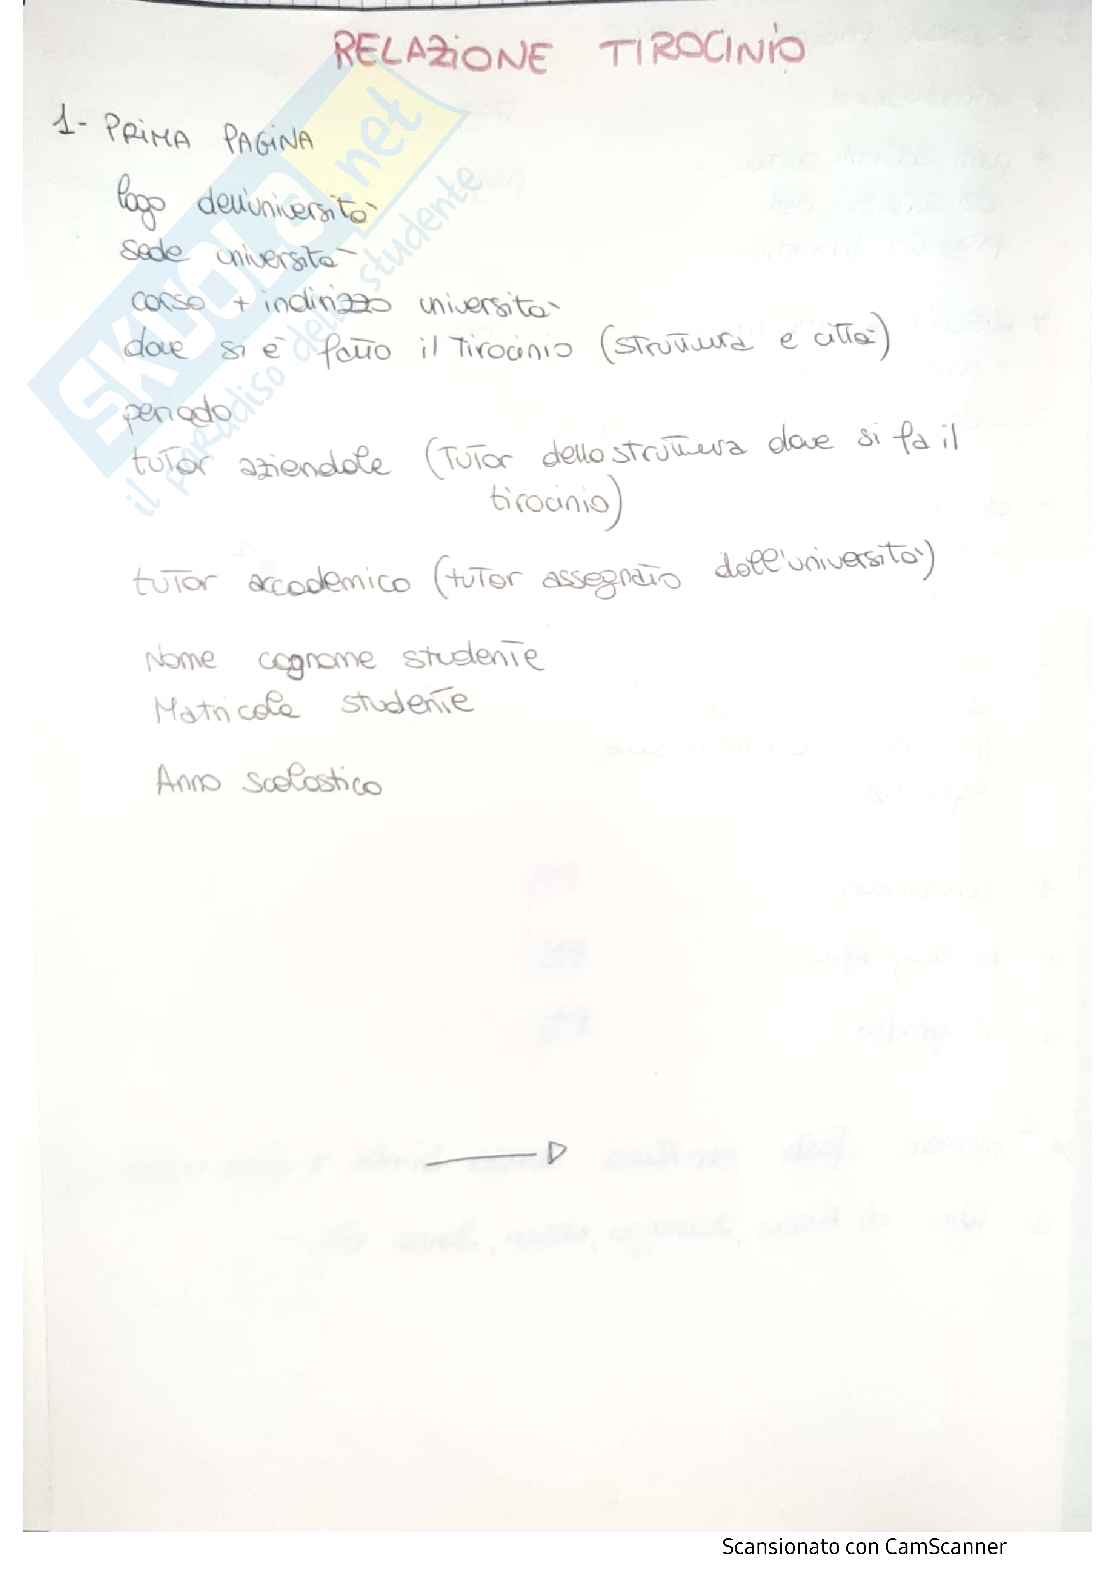 RELAZIONE TIROCINIO
1- PRIMA PAGINA
logo dell'università
sede università
corso + indirizzo università
dove si è fatto il tirocinio (struttura e città)
periodo
tutor aziendale (tutor della struttura dove si fa il
tirocinio)
tutor accademico (tutor assegnato dall'università)
Nome cognome studente
Matricola studente
Anno scolastico
SKUOLA.net
il paradiso dello studente
Scansionato con CamScanner